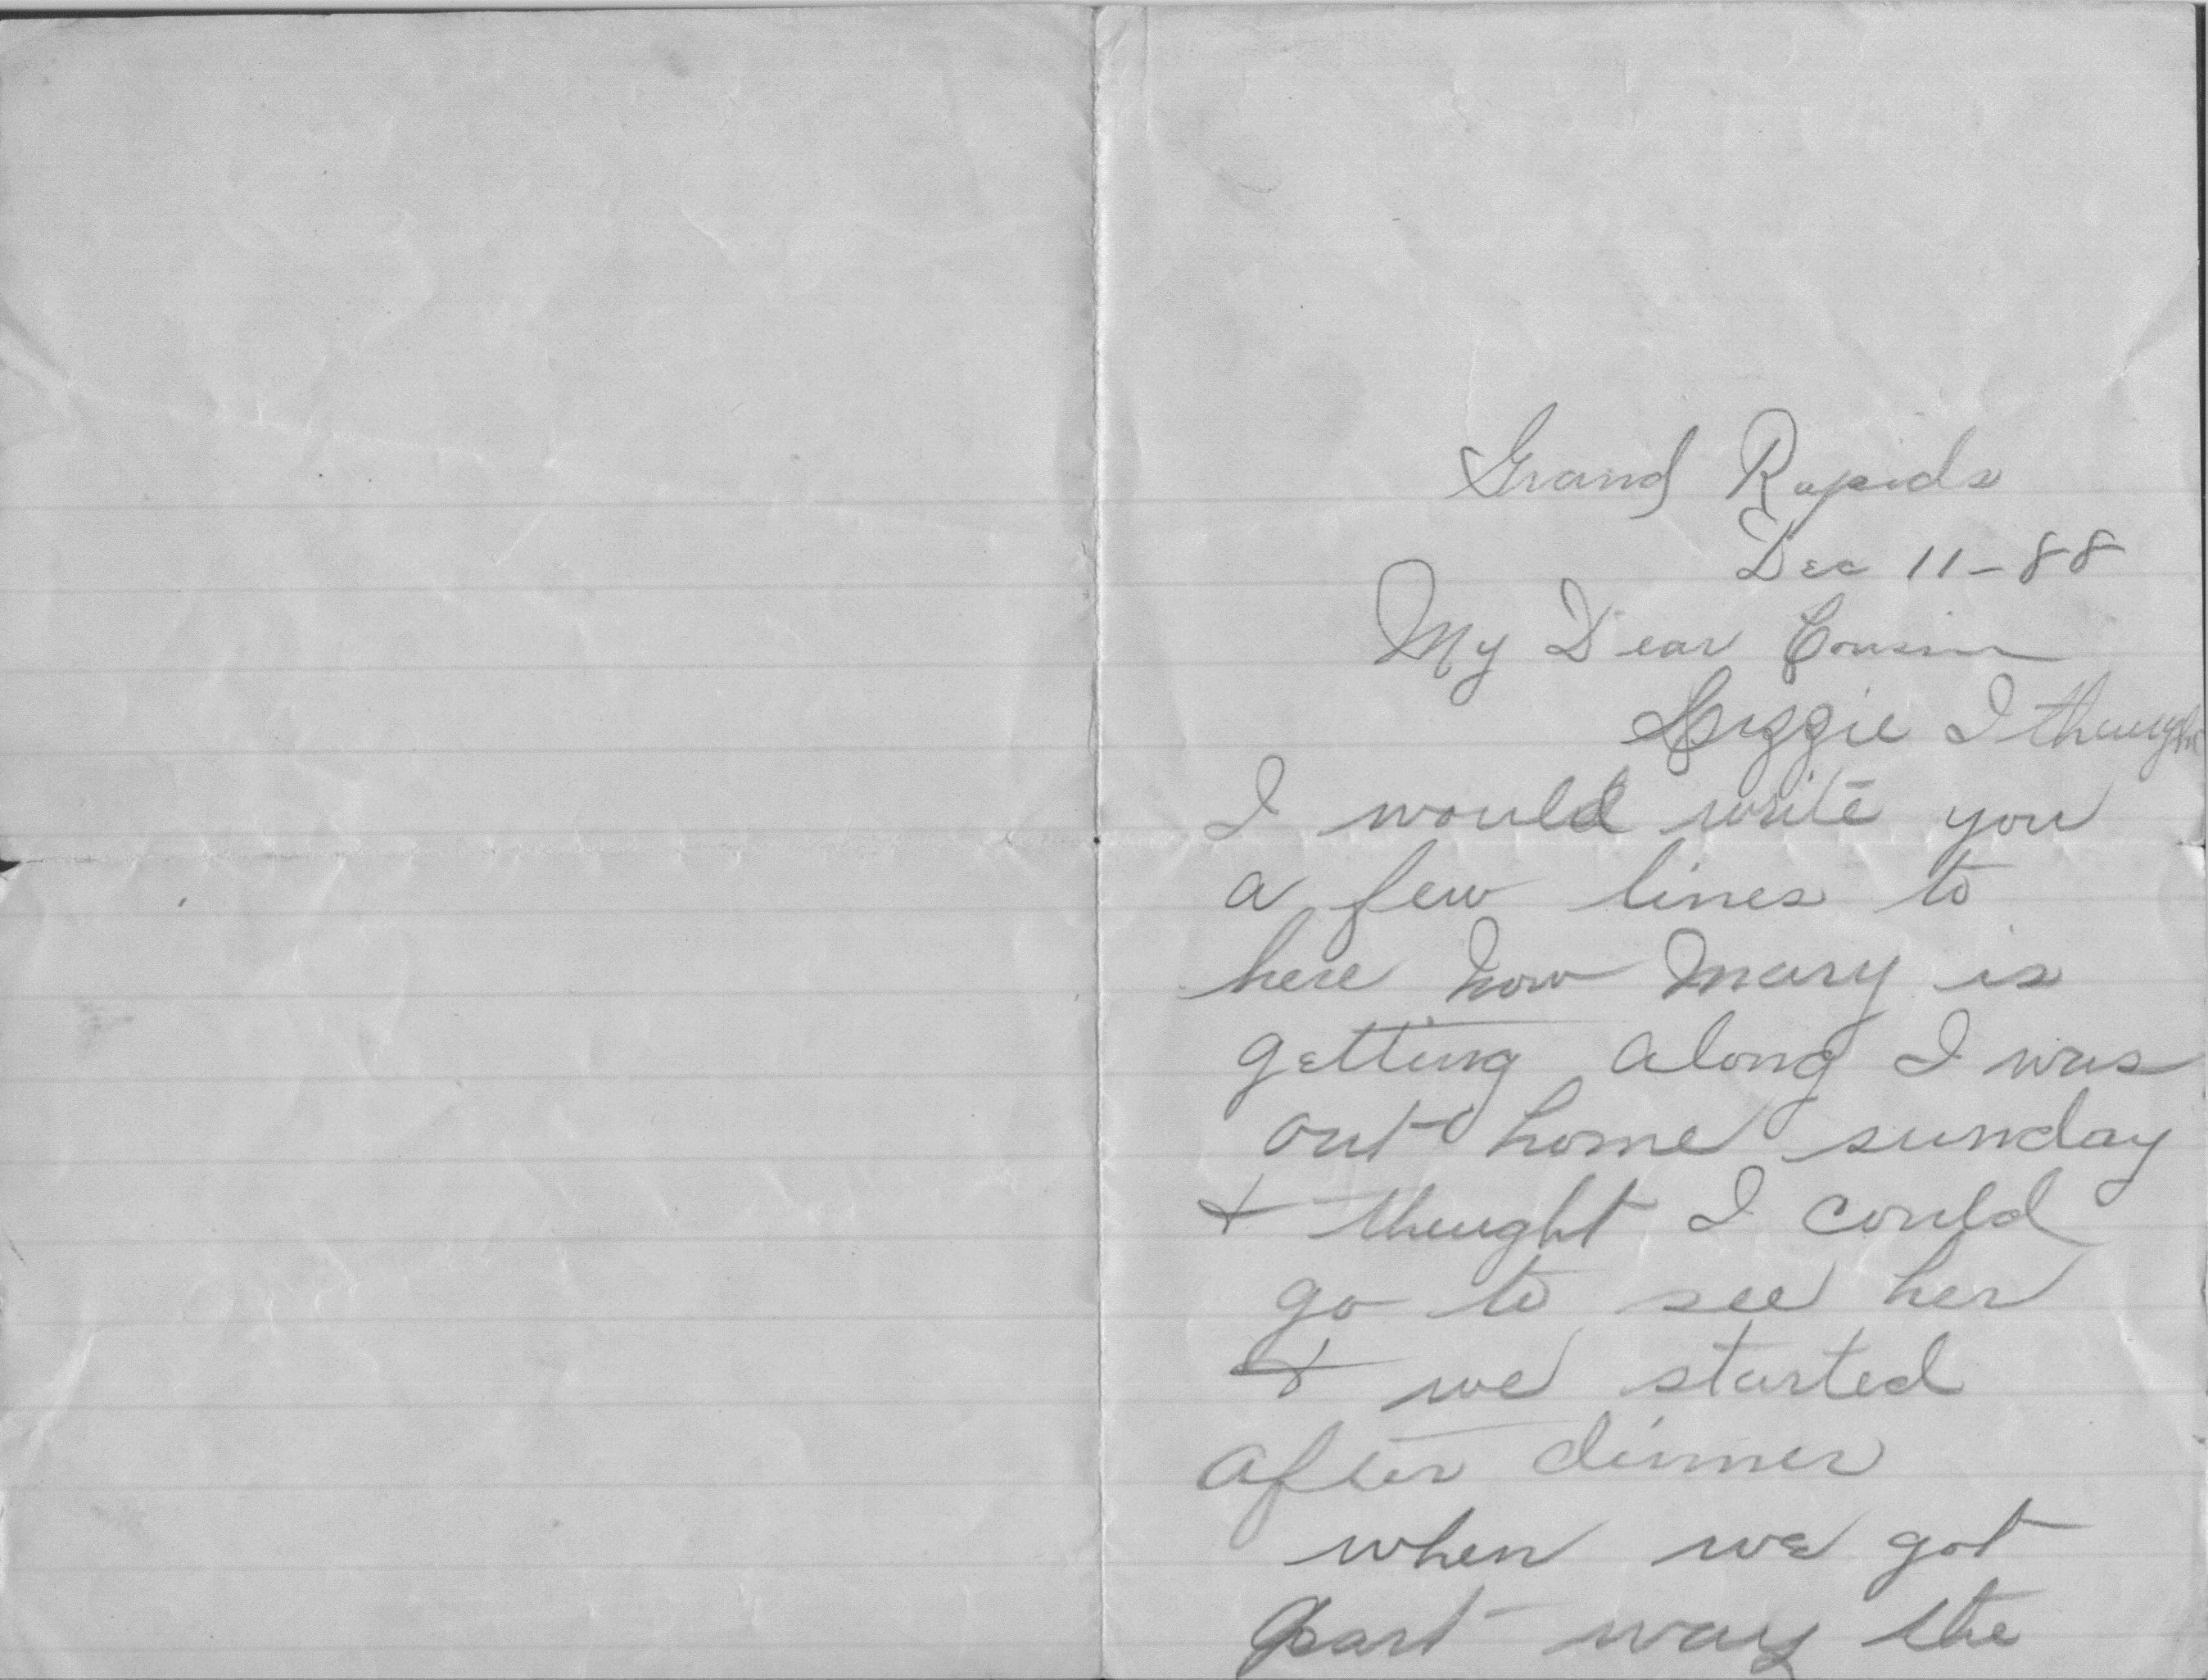 Grand Rapids
Dec 11-88
My Dear Cousin
Lizzie I thought
I would write you
a few lines to
here how Mary is
getting along I was
out home sunday
+ thought I could
go to see her
+ we started
after dinner
when we got
part way the